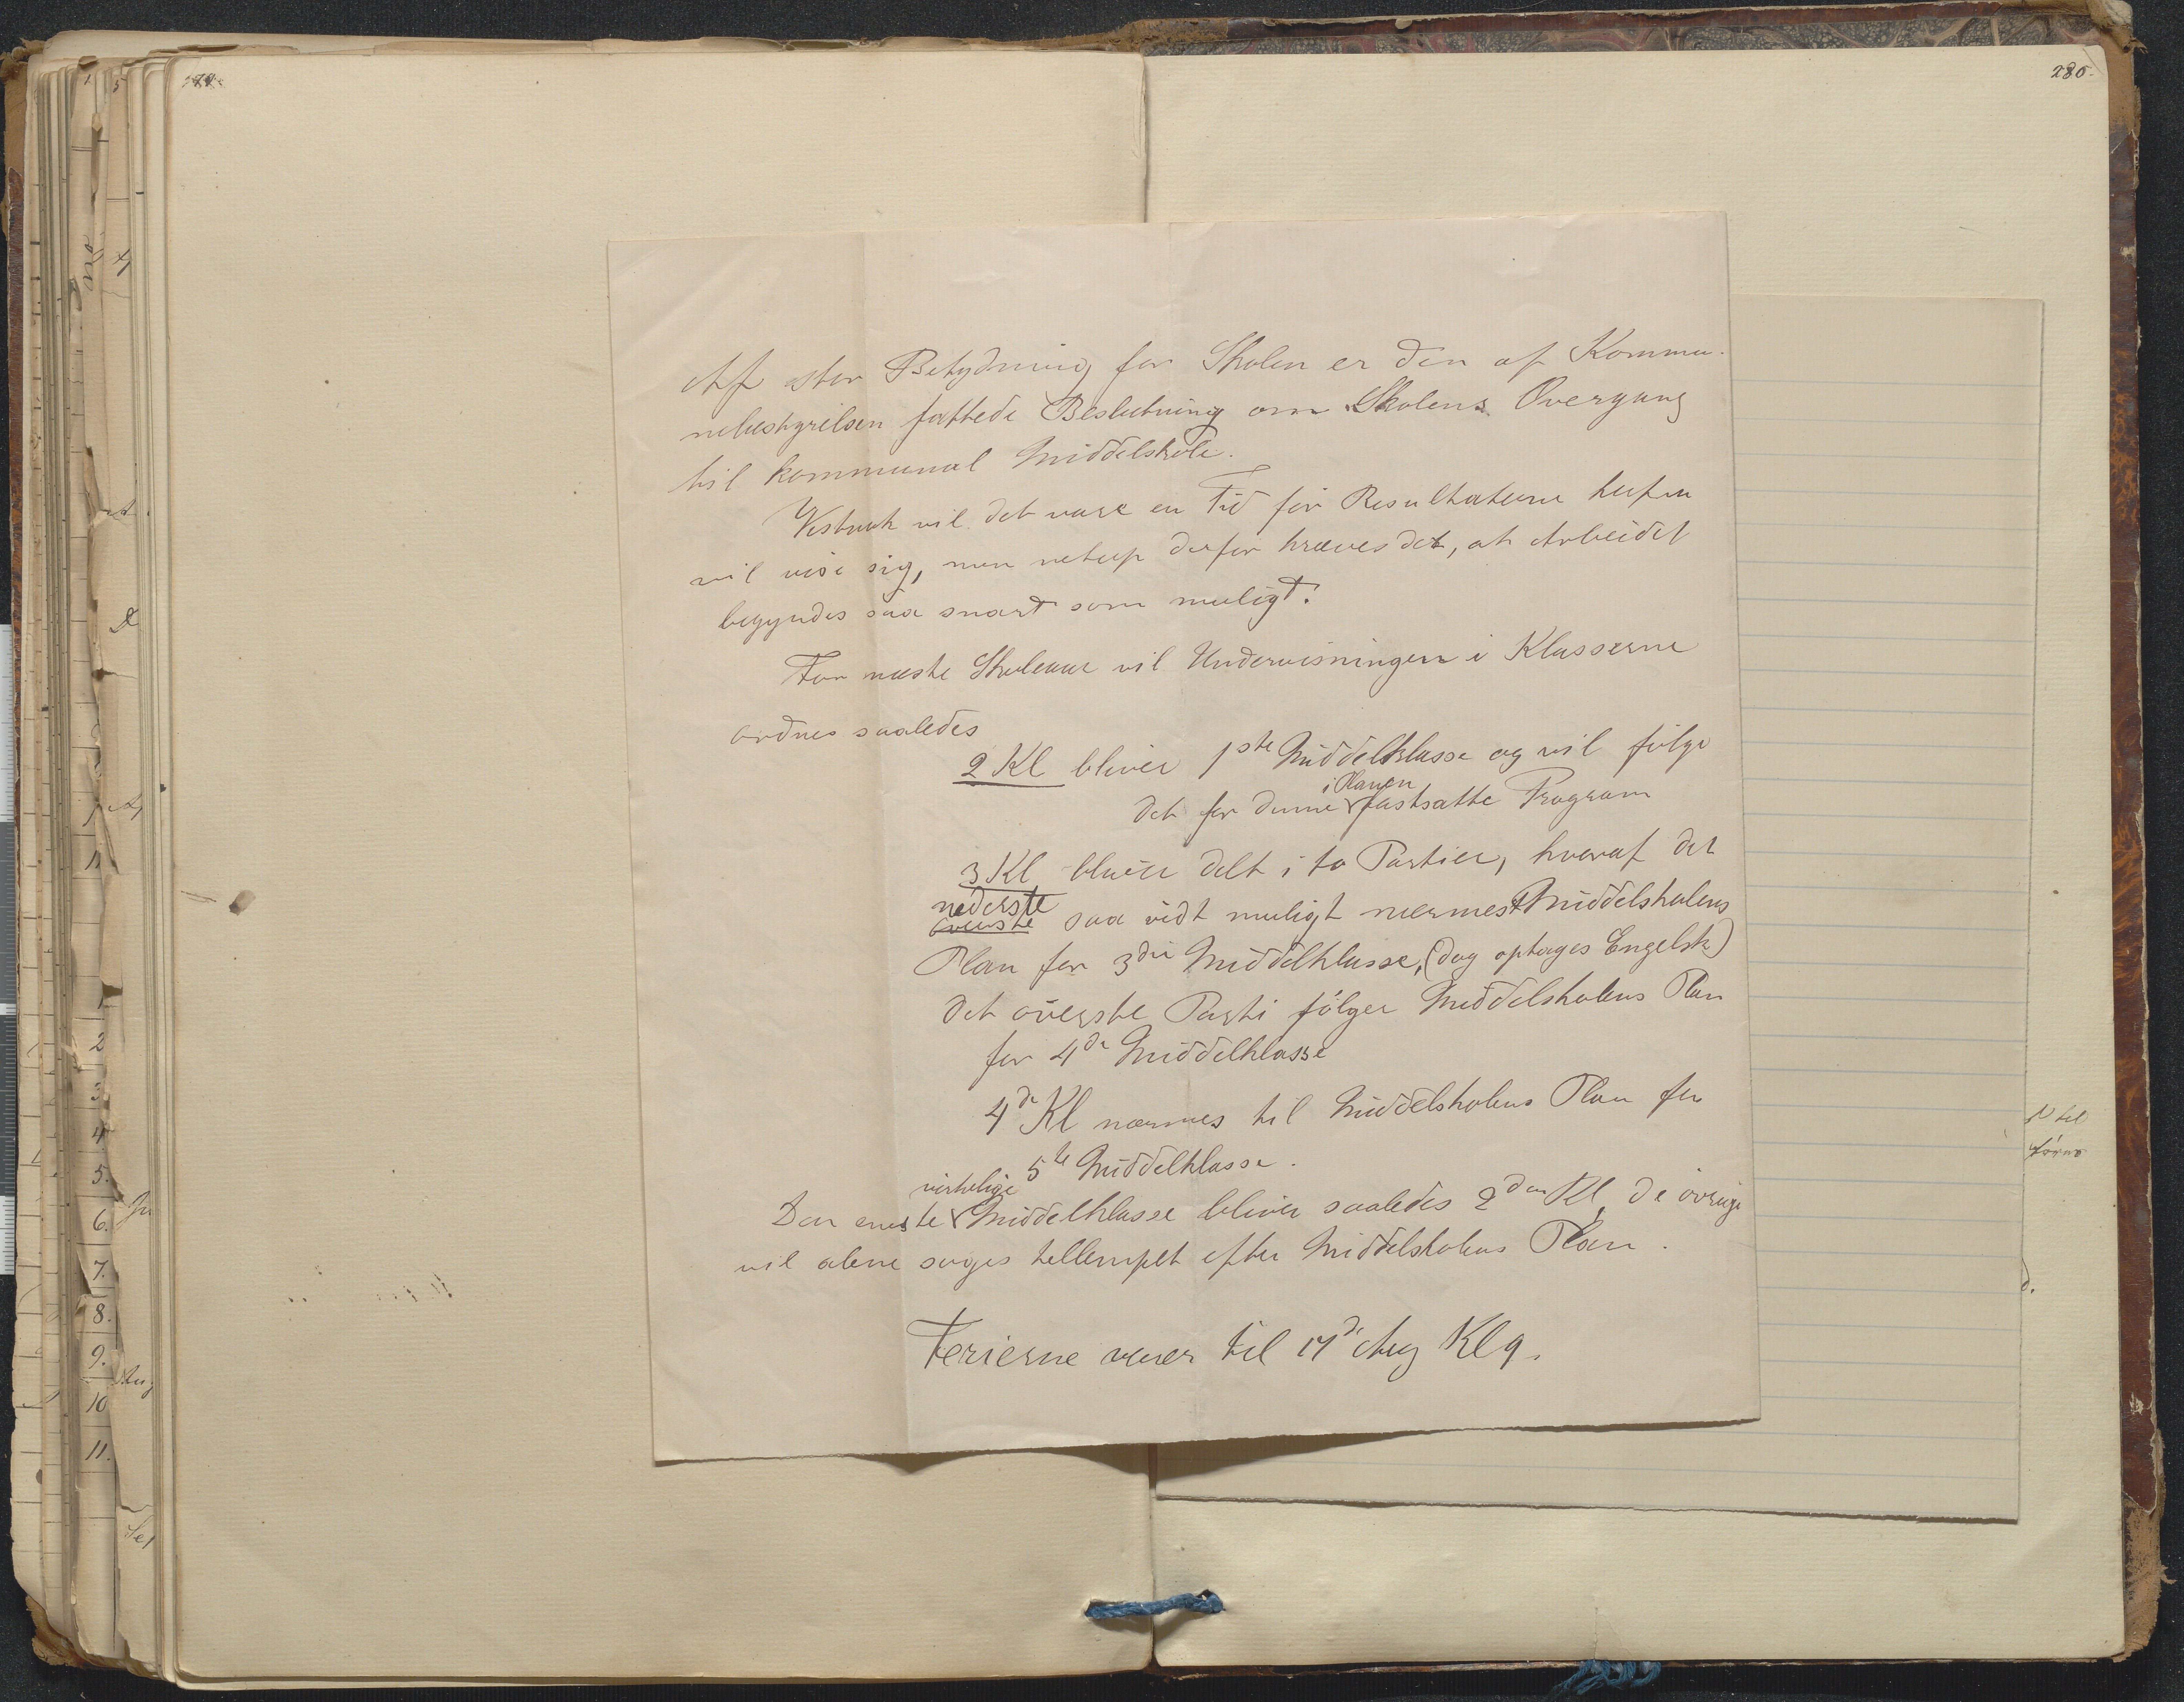 285.
Af stor Betydning for Skolen er den af Kommu-
nebestyrelsen fattede Beslutning om Skolens Overgang
til kommunal Middelskole.
Vistnok vil det vare en Tid før Resultaterne heraf
vil vise sig, men netup derfor kræves det, at Arbeidet
begyndes saa snart som muligt.
For næste Skoleaar vil Undervisningen i Klasserne
ordnes saaledes
2 Kl bliver 1ste Middelklasse og vil følge
i Planen
det for denne fastsatte Program
3 Kl bliver delt i to Partier, hvoraf det
nederste
øverste saa vidt muligt nærmest Middelskolens
Plan for 3die Middelklasse, (dog optages Engelsk)
det øverste Parti følger Middelskolens Plan
for 4de Middelklasse
4de Kl nærmes til Middelskolens Plan for
5te Middelklasse.
virkelige
Den eneste Middelklasse bliver saaledes 2den Kl, de øvrige
vil alene søges tillempet efter Middelskolens Plan.
Ferierne varer til 17de Aug Kl 9.
1
2
3
4
5.
6.
7.
8.
9.
10
11.
Aug